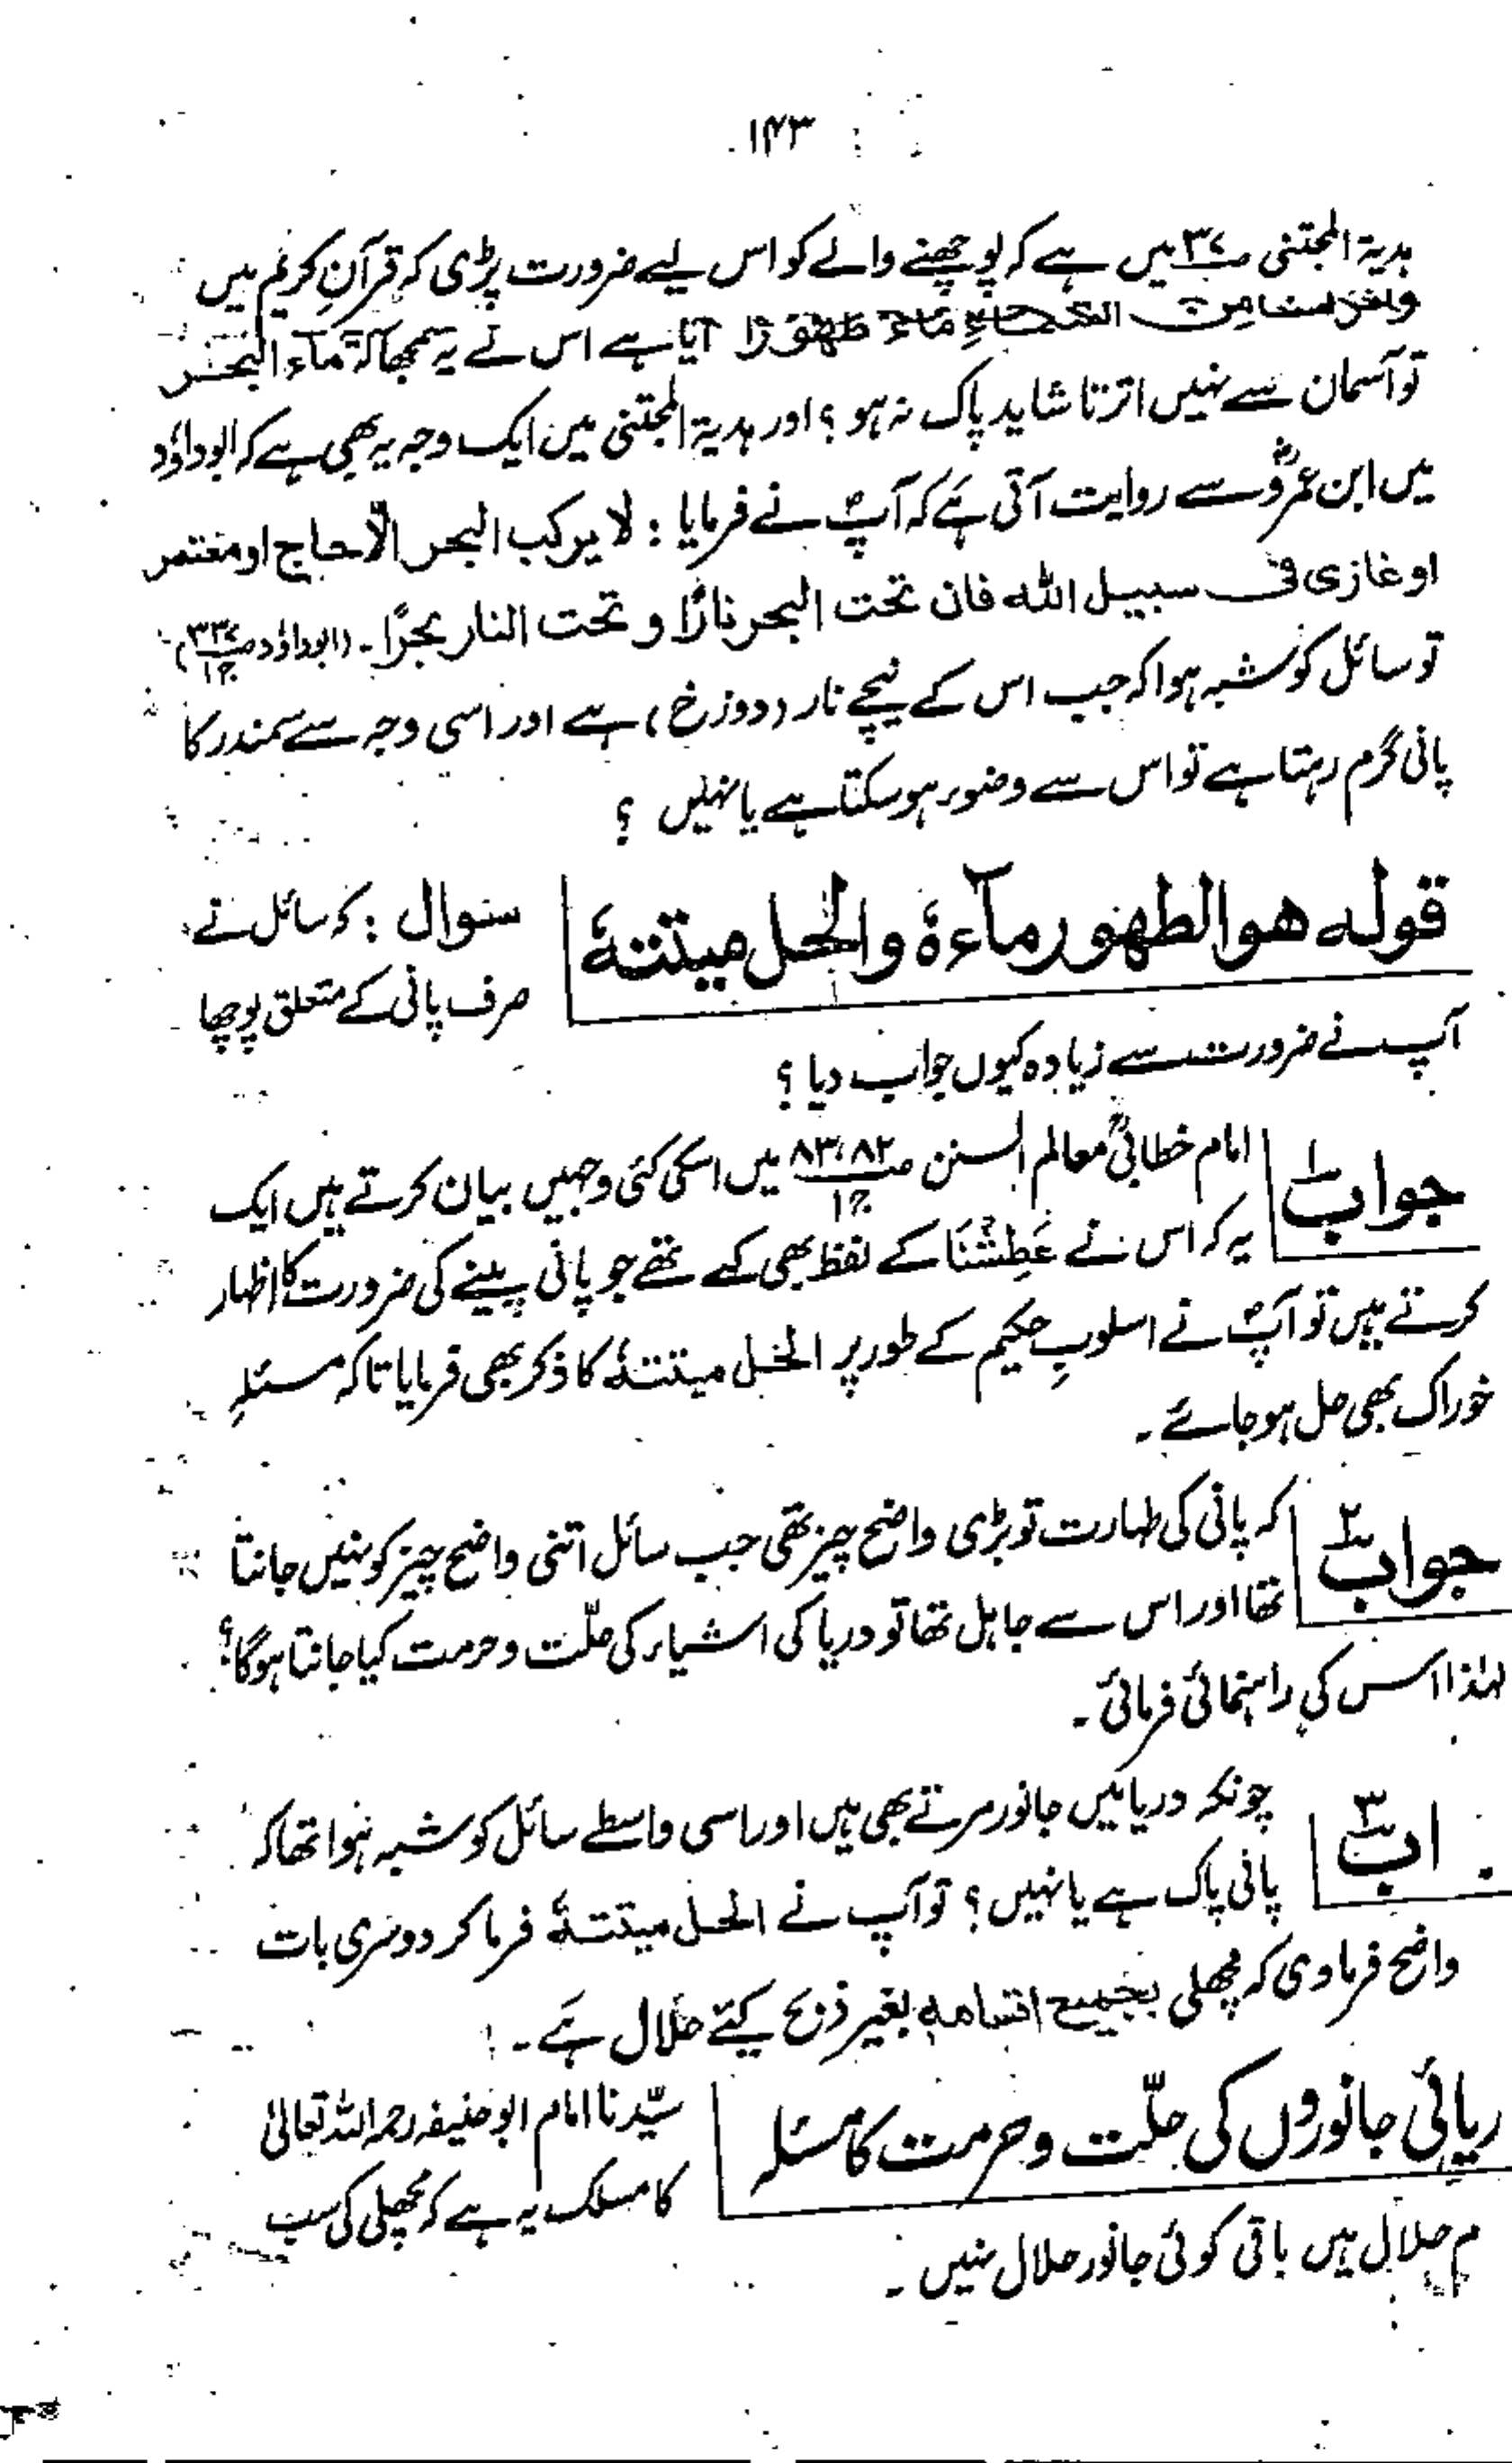 ۱۴۳
ہدیۃ المجتنی ص۳۷ میں ہے کہ پوچھنے والے کو اس لیے ضرورت پڑی کہ قرآنِ کریم میں
وانزلنا من السماءِ مَاءً طَهُوْرًا آیا ہے اس نے یہ سمجھا کہ مآء البحر
تو آسمان سے نہیں اترتا شاید پاک نہ ہو ؟ اور ہدیۃ المجتنی میں ایک وجہ یہ بھی ہے کہ ابوداؤد
میں ابن عمروؓ سے روایت آتی ہے کہ آپؐ نے فرمایا : لا یرکب البحر الّا حاج او معتمر
او غازی فی سبیل اللہ فان تحت البحر نارًا و تحت النار بحرًا ۔ (ابوداؤد ص۳۳۷ ج۱)
تو سائل کو شبہ ہوا کہ جب اس کے نیچے نار (دوزخ) ہے اور اسی وجہ سے سمندر کا
پانی گرم رہتا ہے تو اس سے وضوء ہو سکتا ہے یا نہیں ؟
قولہ ھو الطھور مآءہٗ والحل میتتہٗ
سوال : کہ سائل نے
صرف پانی کے متعلق پوچھا
آپ نے ضرورت سے زیادہ کیوں جواب دیا ؟
جواب ۱ امام خطابیؒ معالم السنن ص۸۲، ۸۳ ج۱ میں اسکی کئی وجہیں بیان کرتے ہیں ایک
یہ کہ اس نے عَطِشْنَا کے لفظ بھی کہے تھے جو پانی پینے کی ضرورت کا اظہار
کرتے ہیں تو آپؐ نے اسلوبِ حکیم کے طور پر الحل میتتہٗ کا ذکر بھی فرمایا تاکہ مسئلہِ
خوراک بھی حل ہو جائے ۔
جواب ۲ کہ پانی کی طہارت تو بڑی واضح چیز تھی جب سائل اتنی واضح چیز کو نہیں جانتا
تھا اور اس سے جاہل تھا تو دریا کی اشیاء کی حلّت و حرمت کیا جانتا ہوگا؟
لہٰذا اس کی راہنمائی فرمائی ۔
اب ۳ چونکہ دریا میں جانور مرتے بھی ہیں اور اسی واسطے سائل کو شبہ ہوا تھا کہ
پانی پاک ہے یا نہیں ؟ تو آپ نے الحل میتتہٗ فرما کر دوسری بات
واضح فرما دی کہ مچھلی بجمیع اقسامہٖ بغیر ذبح کیئے حلال ہے ۔
ریائی جانوروں کی حلّت و حرمت کا مسئلہ
سیّدنا امام ابو حنیفہ رحمہ اللہ تعالیٰ
کا مسلک یہ ہے کہ مچھلی کی سب
م حلال ہیں باقی کوئی جانور حلال نہیں ۔